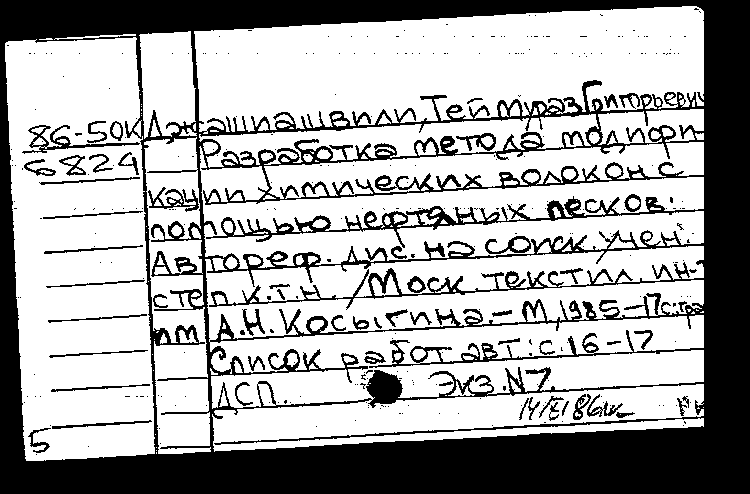 86-50К Джашиашвили, Теймураз Григорьевич
6824 Разработка метода модифи-
кации химических волокон с
помощью нефтяных песков:
Автореф. дис. на соиск. учен.
степ. к.т.н. / Моск. текстил. ин-т
им А.Н. Косыгина.-М, 1985.-17с: гра
Список работ авт: с.16-17
ДСП. Экз. N7.
5